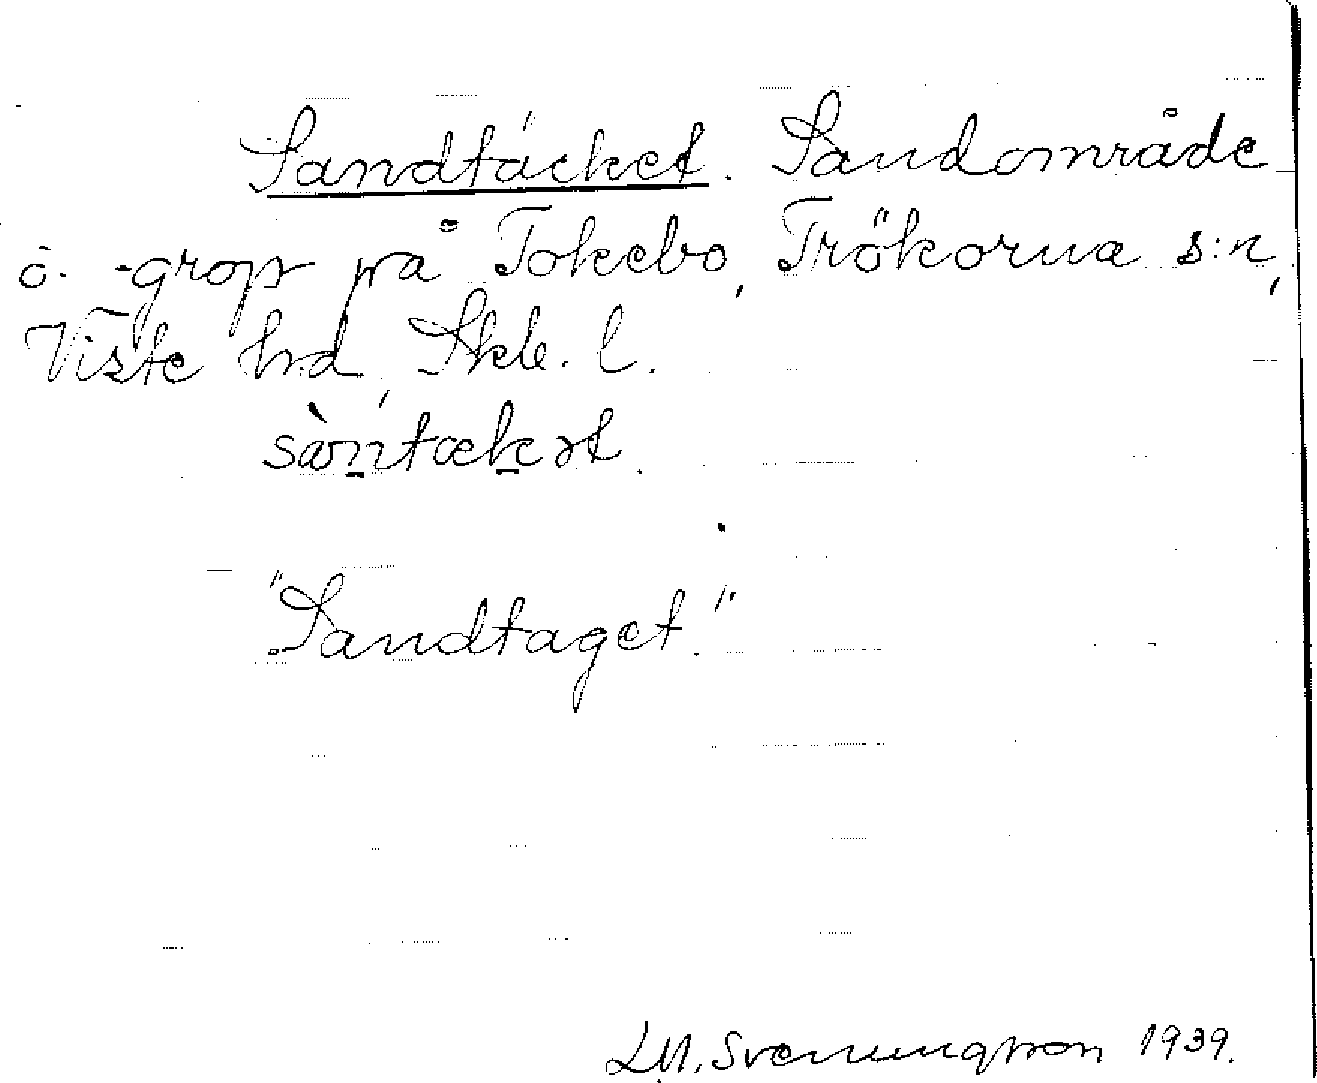 Sandtäcket. Sandområde
o. -grop på Tokebo, Trökörna s:n,
Viste hd, Skb. l.
sàntækət.
"Sandtaget."
LM. Svenungsson 1939.